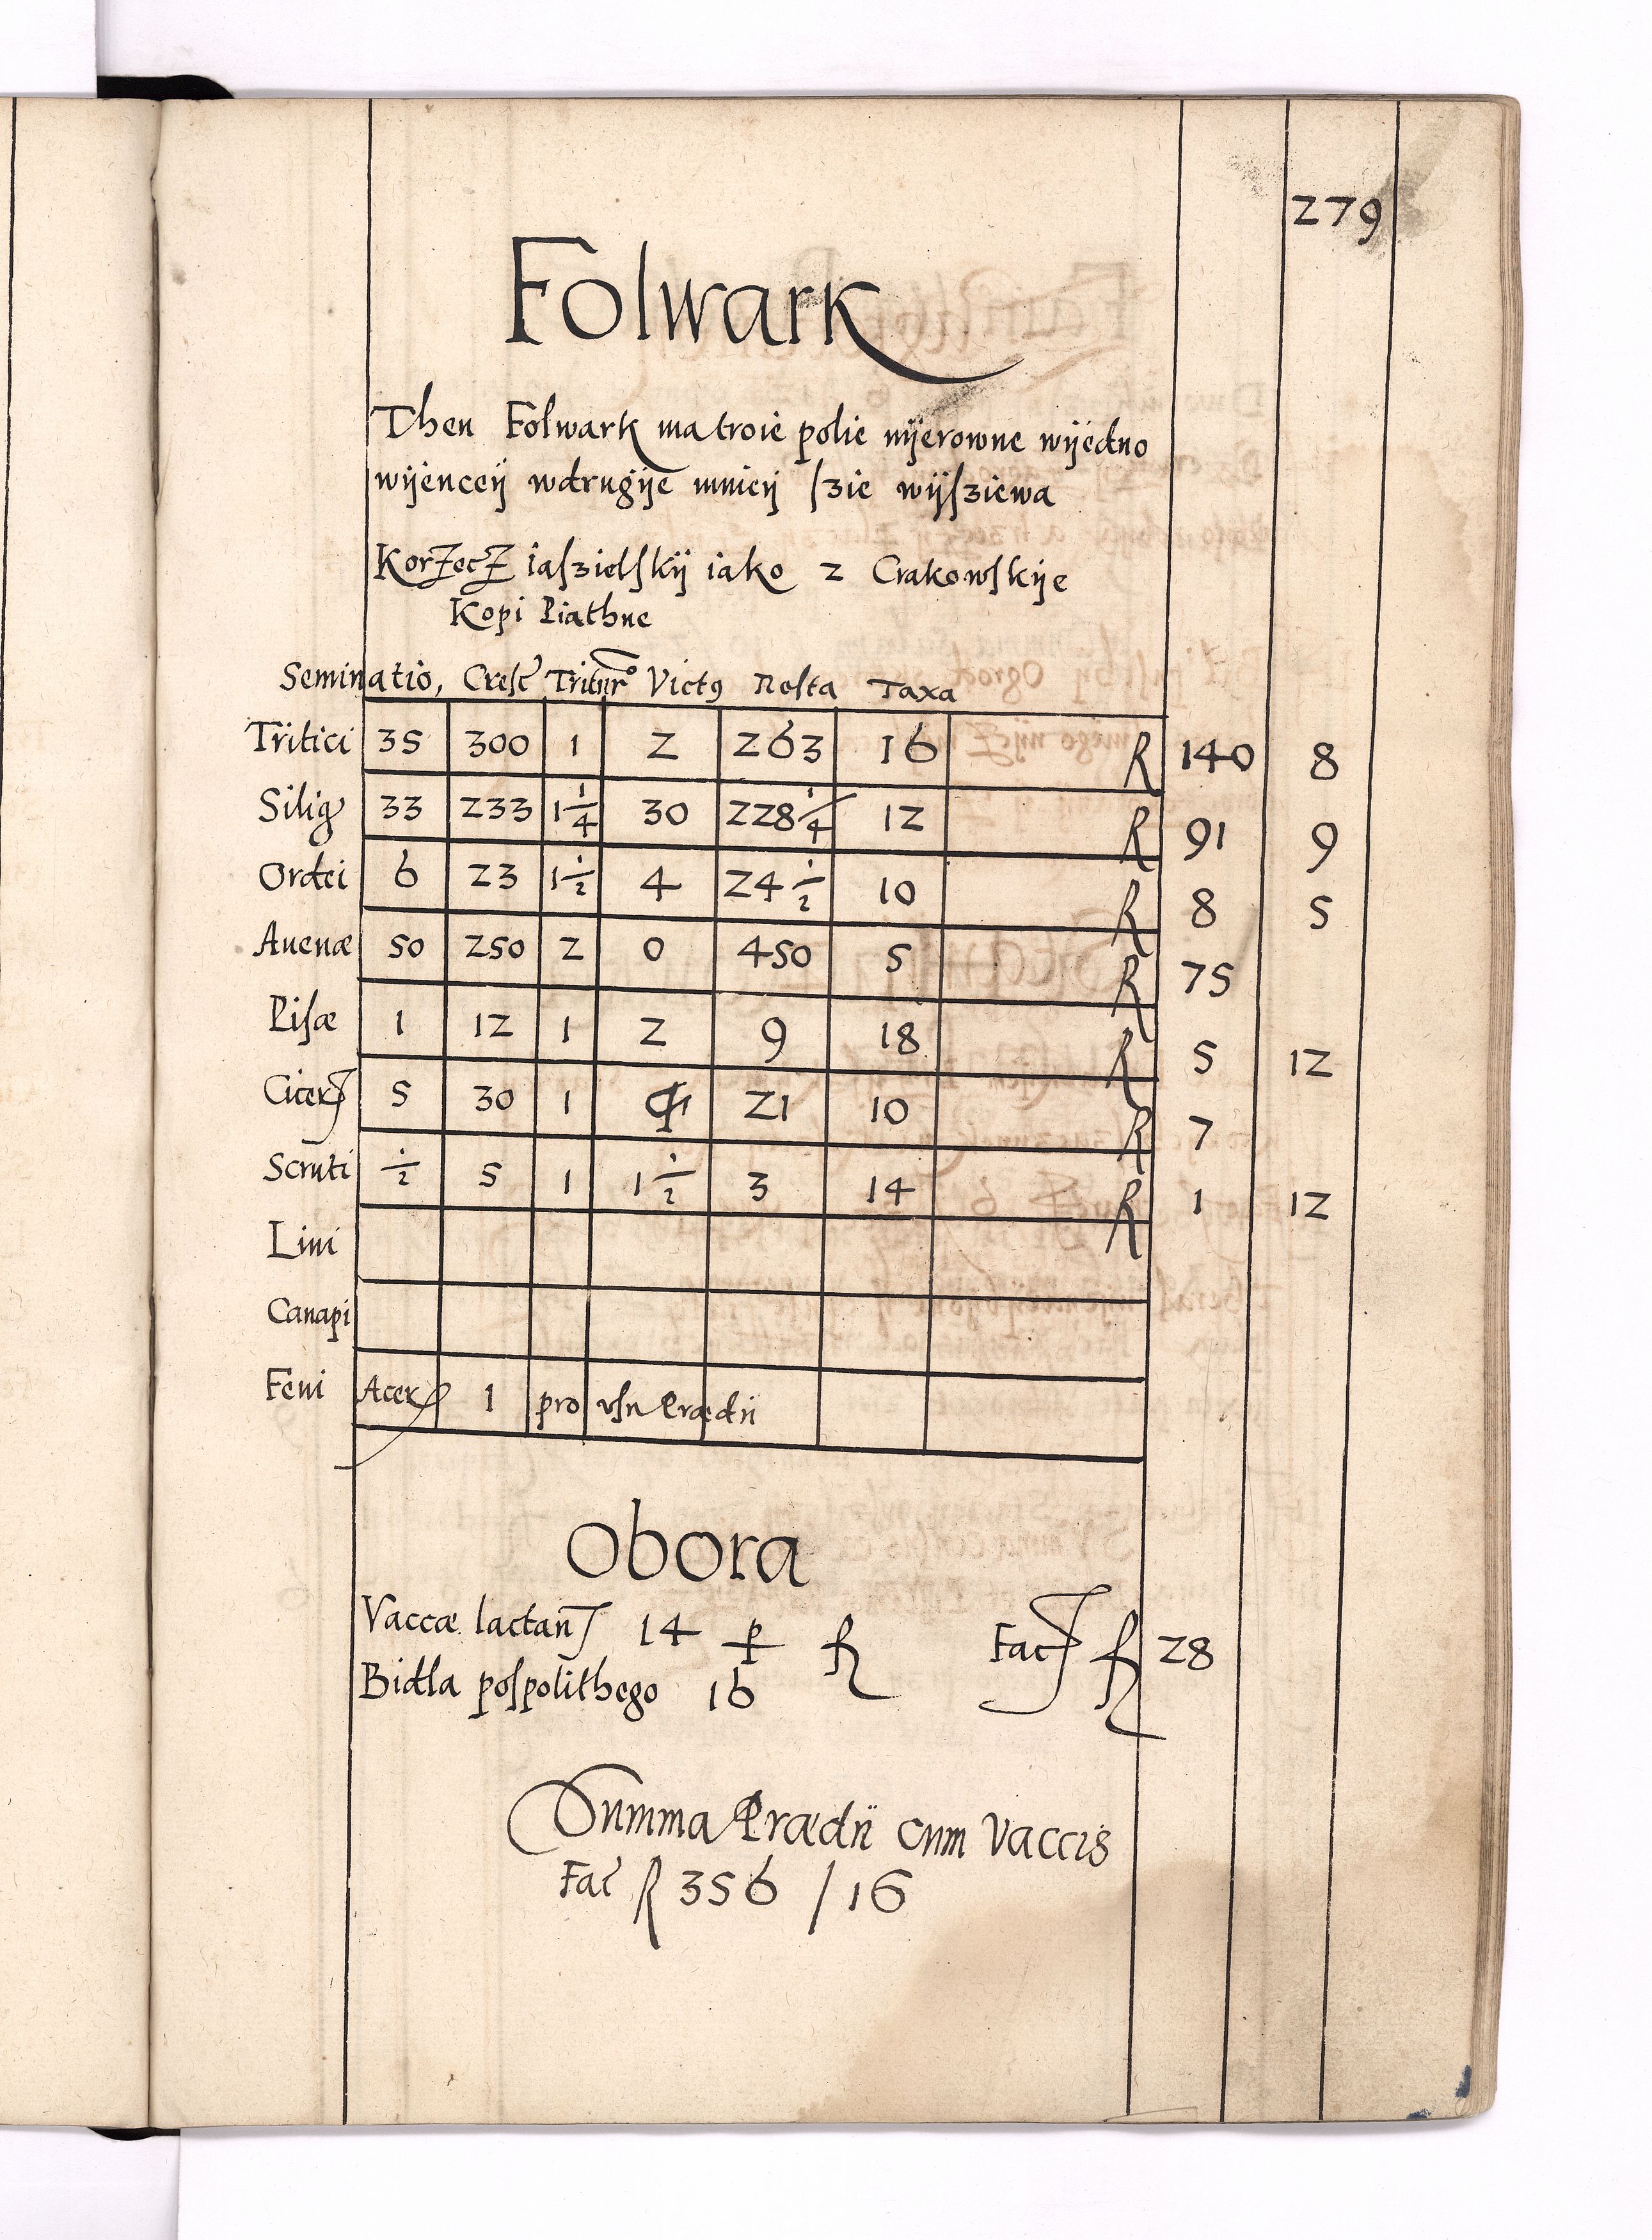 279
Folwark
Then Folwark ma troie polie nijerowne wijedno
wijenceij wdrugije mnieij szie wijsziewa
Korzecz iaszielskij iako z Crakowskije
Kopi Piathne
Seminatio, Cresc Tritur Victus Resta Taxa
Tritici 35 300 1 2 263 16 R 140 8
Silig 33 233 1 1/4 30 228 1/4 12 R 91 9
Ordei 6 23 1 1/2 4 24 1/2 10 R 8 5
Auenæ 50 250 2 0 450 5 R 75
Pisæ 1 12 1 2 9 18 R 5 12
Cicer 5 30 1 21 10 R 7
Scruti 1/2 5 1 1 1/2 3 14 R 1 12
Lini
Canapi
Feni Acer 1 pro vsu Prædii
Obora
Vaccæ lactan 14 P R Fac R 28
Bidla pospolithego 16
Summa Prædii cum Vaccis
Fac R 356 / 16